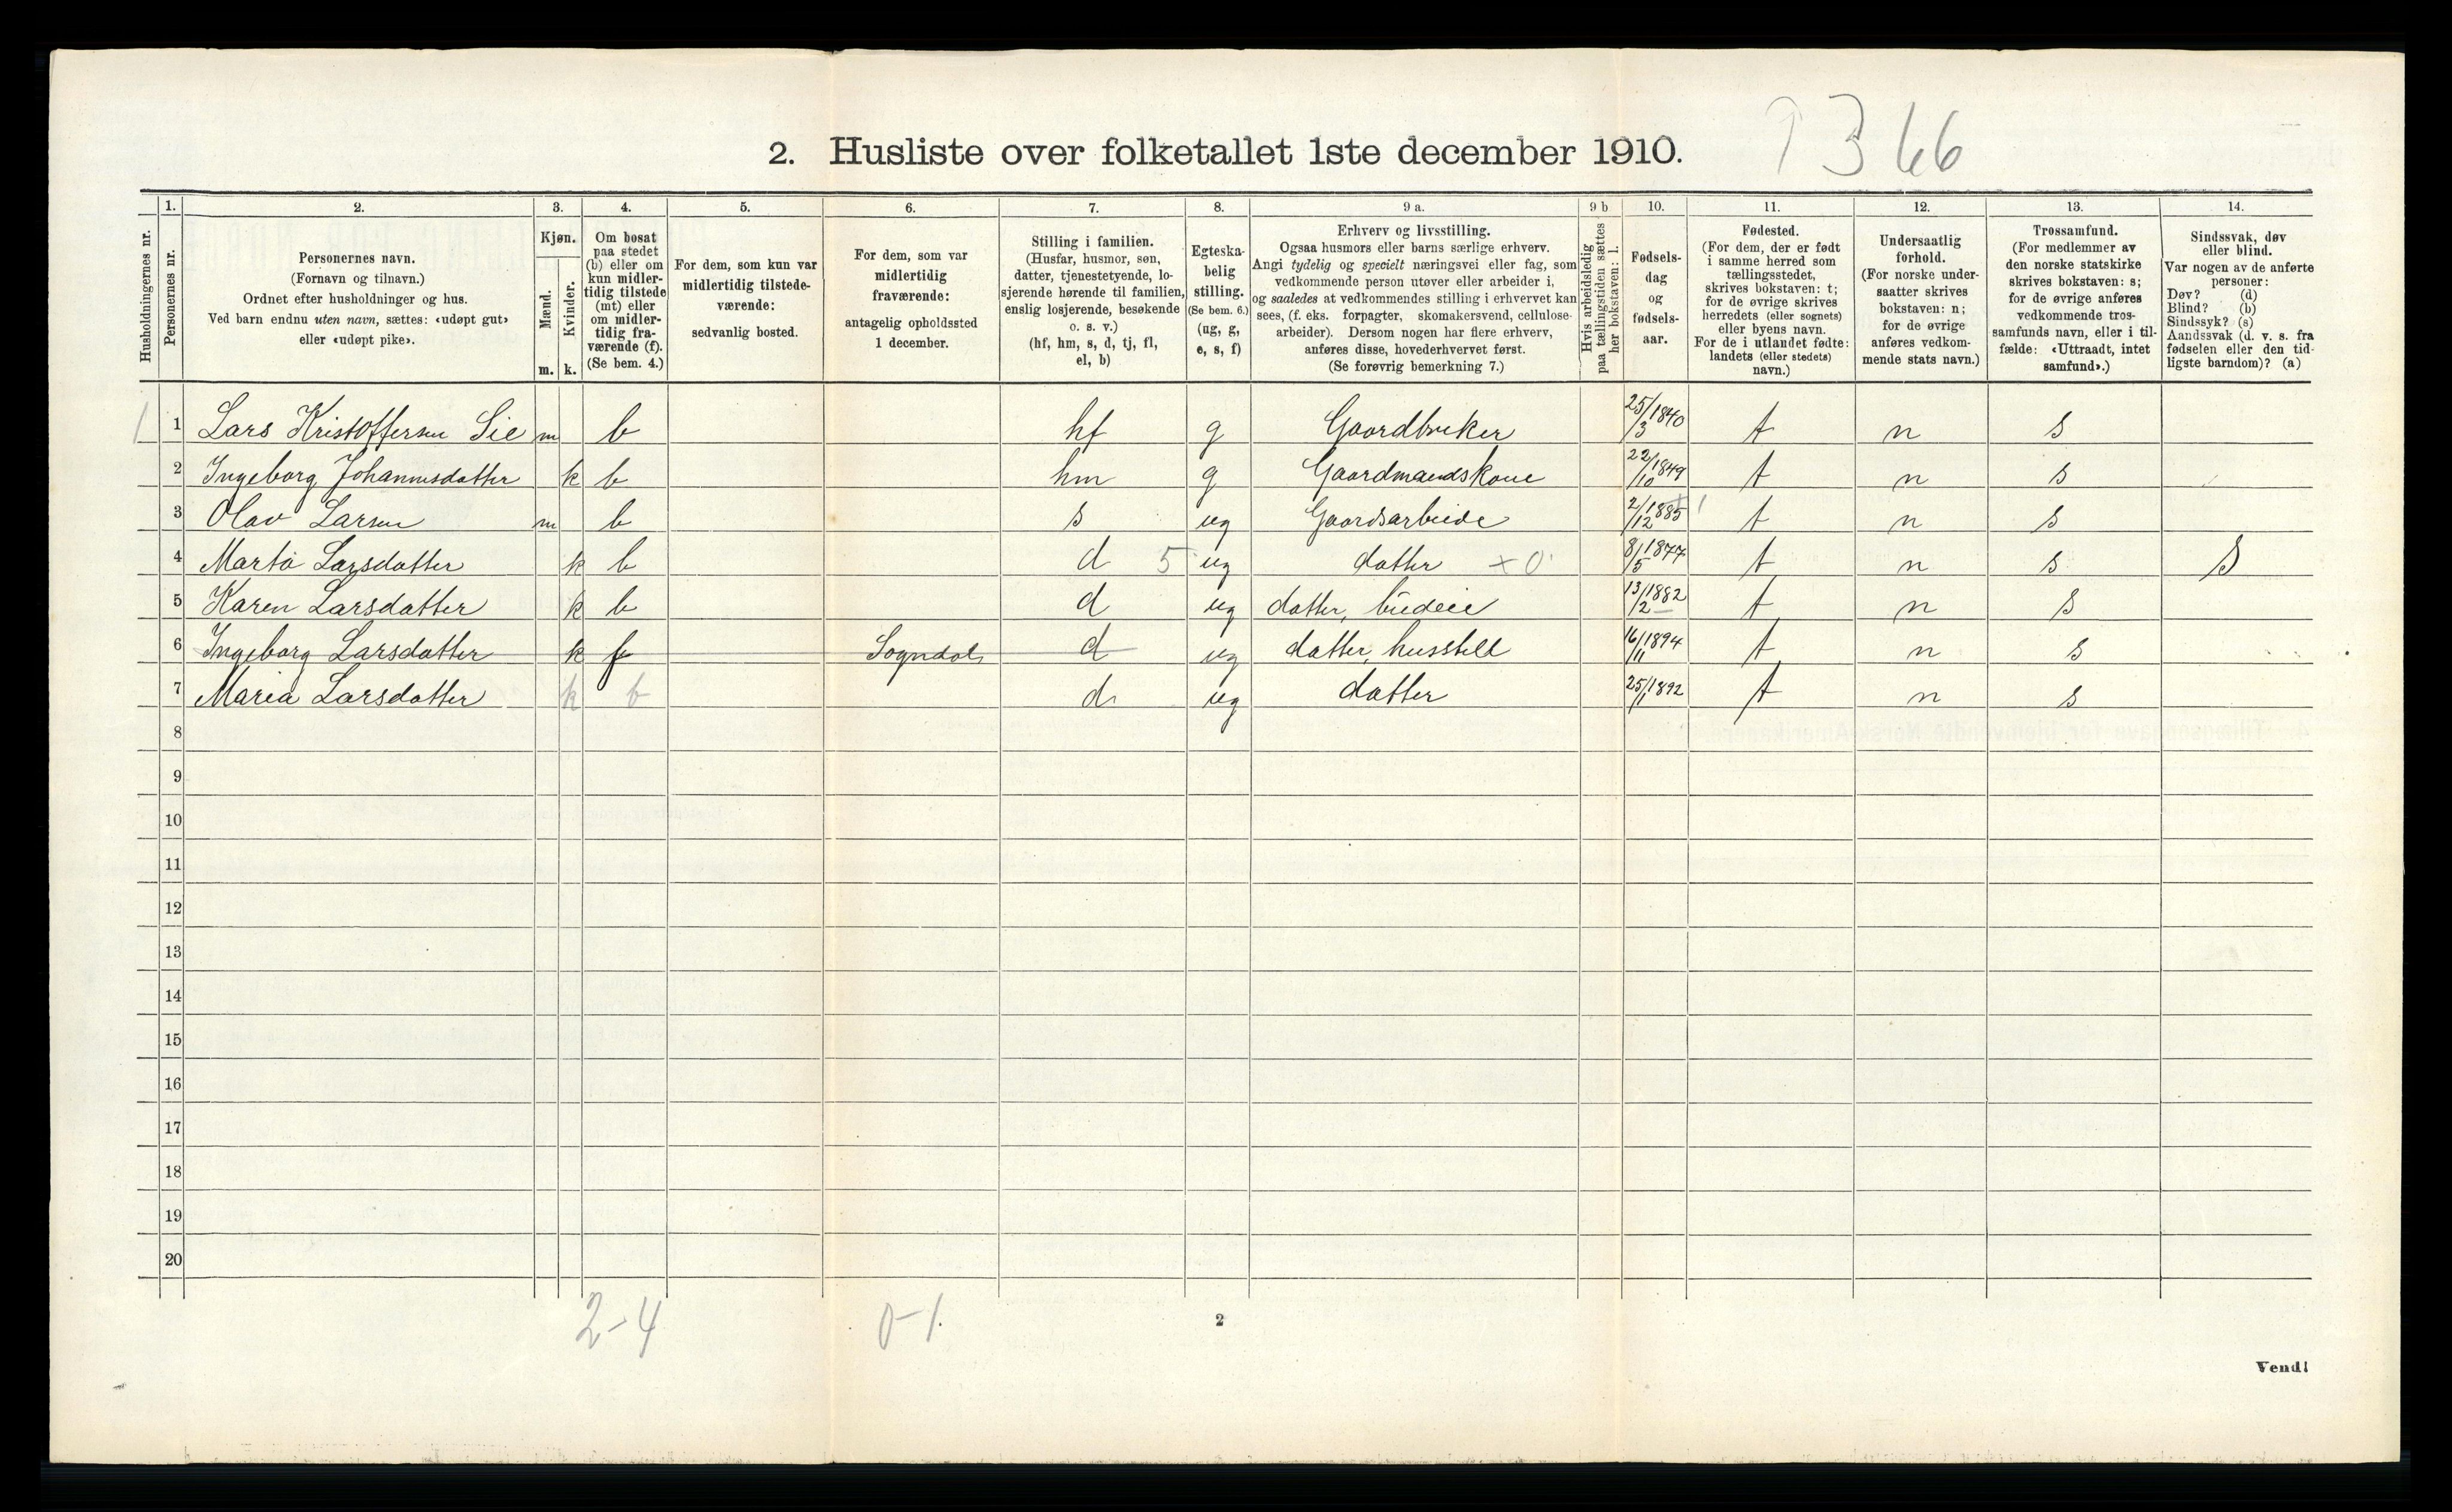 2. Husliste over folketallet 1ste december 1910.
366
Husholdningernes nr.
1.
Personernes nr.
2.
Personernes navn.
(Fornavn og tilnavn.)
Ordnet efter husholdninger og hus.
Ved barn endnu uten navn, sættes: «udøpt gut»
eller «udøpt pike».
3.
Kjøn.
Mænd.
Kvinder.
m. k.
4.
Om bosat
paa stedet
(b) eller om
kun midler-
tidig tilstede
(mt) eller
om midler-
tidig fra-
værende (f).
(Se bem. 4.)
5.
For dem, som kun var
midlertidig tilstede-
værende:
sedvanlig bosted.
6.
For dem, som var
midlertidig
fraværende:
antagelig opholdssted
1 december.
7.
Stilling i familien.
(Husfar, husmor, søn,
datter, tjenestetyende, lo-
sjerende hørende til familien,
enslig losjerende, besøkende
o. s. v.)
(hf, hm, s, d, tj, fl,
el, b)
8.
Egteska-
belig
stilling.
(Se bem. 6.)
(ug, g,
e, s, f)
9 a.
Erhverv og livsstilling.
Ogsaa husmors eller barns særlige erhverv.
Angi tydelig og specielt næringsvei eller fag, som
vedkommende person utøver eller arbeider i,
og saaledes at vedkommendes stilling i erhvervet kan
sees, (f. eks. forpagter, skomakersvend, cellulose-
arbeider). Dersom nogen har flere erhverv,
anføres disse, hovederhvervet først.
(Se forøvrig bemerkning 7.)
9 b
Hvis arbeidsledig
paa tællingstiden sættes
her bokstaven: l.
10.
Fødsels-
dag
og
fødsels-
aar.
11.
Fødested.
(For dem, der er født
i samme herred som
tællingsstedet,
skrives bokstaven: t;
for de øvrige skrives
herredets (eller sognets)
eller byens navn.
For de i utlandet fødte:
landets (eller stedets)
navn.)
12.
Undersaatlig
forhold.
(For norske under-
saatter skrives
bokstaven: n;
for de øvrige
anføres vedkom-
mende stats navn.)
13.
Trossamfund.
(For medlemmer av
den norske statskirke
skrives bokstaven: s;
for de øvrige anføres
vedkommende tros-
samfunds navn, eller i til-
fælde: «Uttraadt, intet
samfund».)
14.
Sindssvak, døv
eller blind.
Var nogen av de anførte
personer:
Døv? (d)
Blind? (b)
Sindssyk? (s)
Aandssvak (d. v. s. fra
fødselen eller den tid-
ligste barndom)? (a)
1 1 Lars Kristoffersen Sie m b hf g Gaardbruker 25/3 1840 t n s
2 Ingeborg Johannesdatter k b hm g Gaardmandskone 22/10 1849 t n s
3 Olav Larsen m b s ug Gaardsarbeide 2/12 1885 1 t n s
4 Marta Larsdatter k b d 5 ug datter x 0 8/5 1877 t n s S
5 Karen Larsdatter k b d ug datter, budeie 13/2 1882 t n s
6 Ingeborg Larsdatter k f Sogndal d ug datter, husstell 16/11 1894 t n s
7 Maria Larsdatter k b d ug datter 25/1 1892 t n s
8
9
10
11
12
13
14
15
16
17
18
19
20
2-4 0-1.
2
Vend!